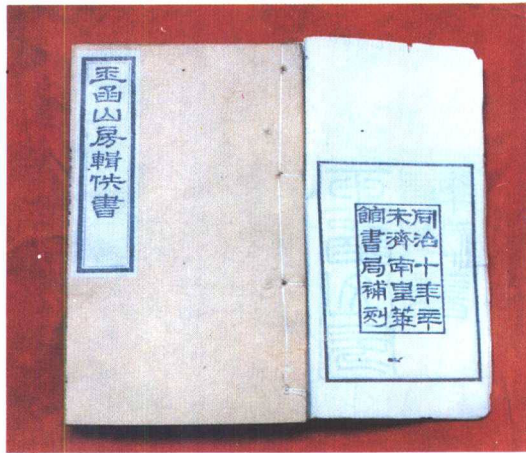 玉函山房輯佚書
同治十年辛
未濟南皇華
館書局補刻